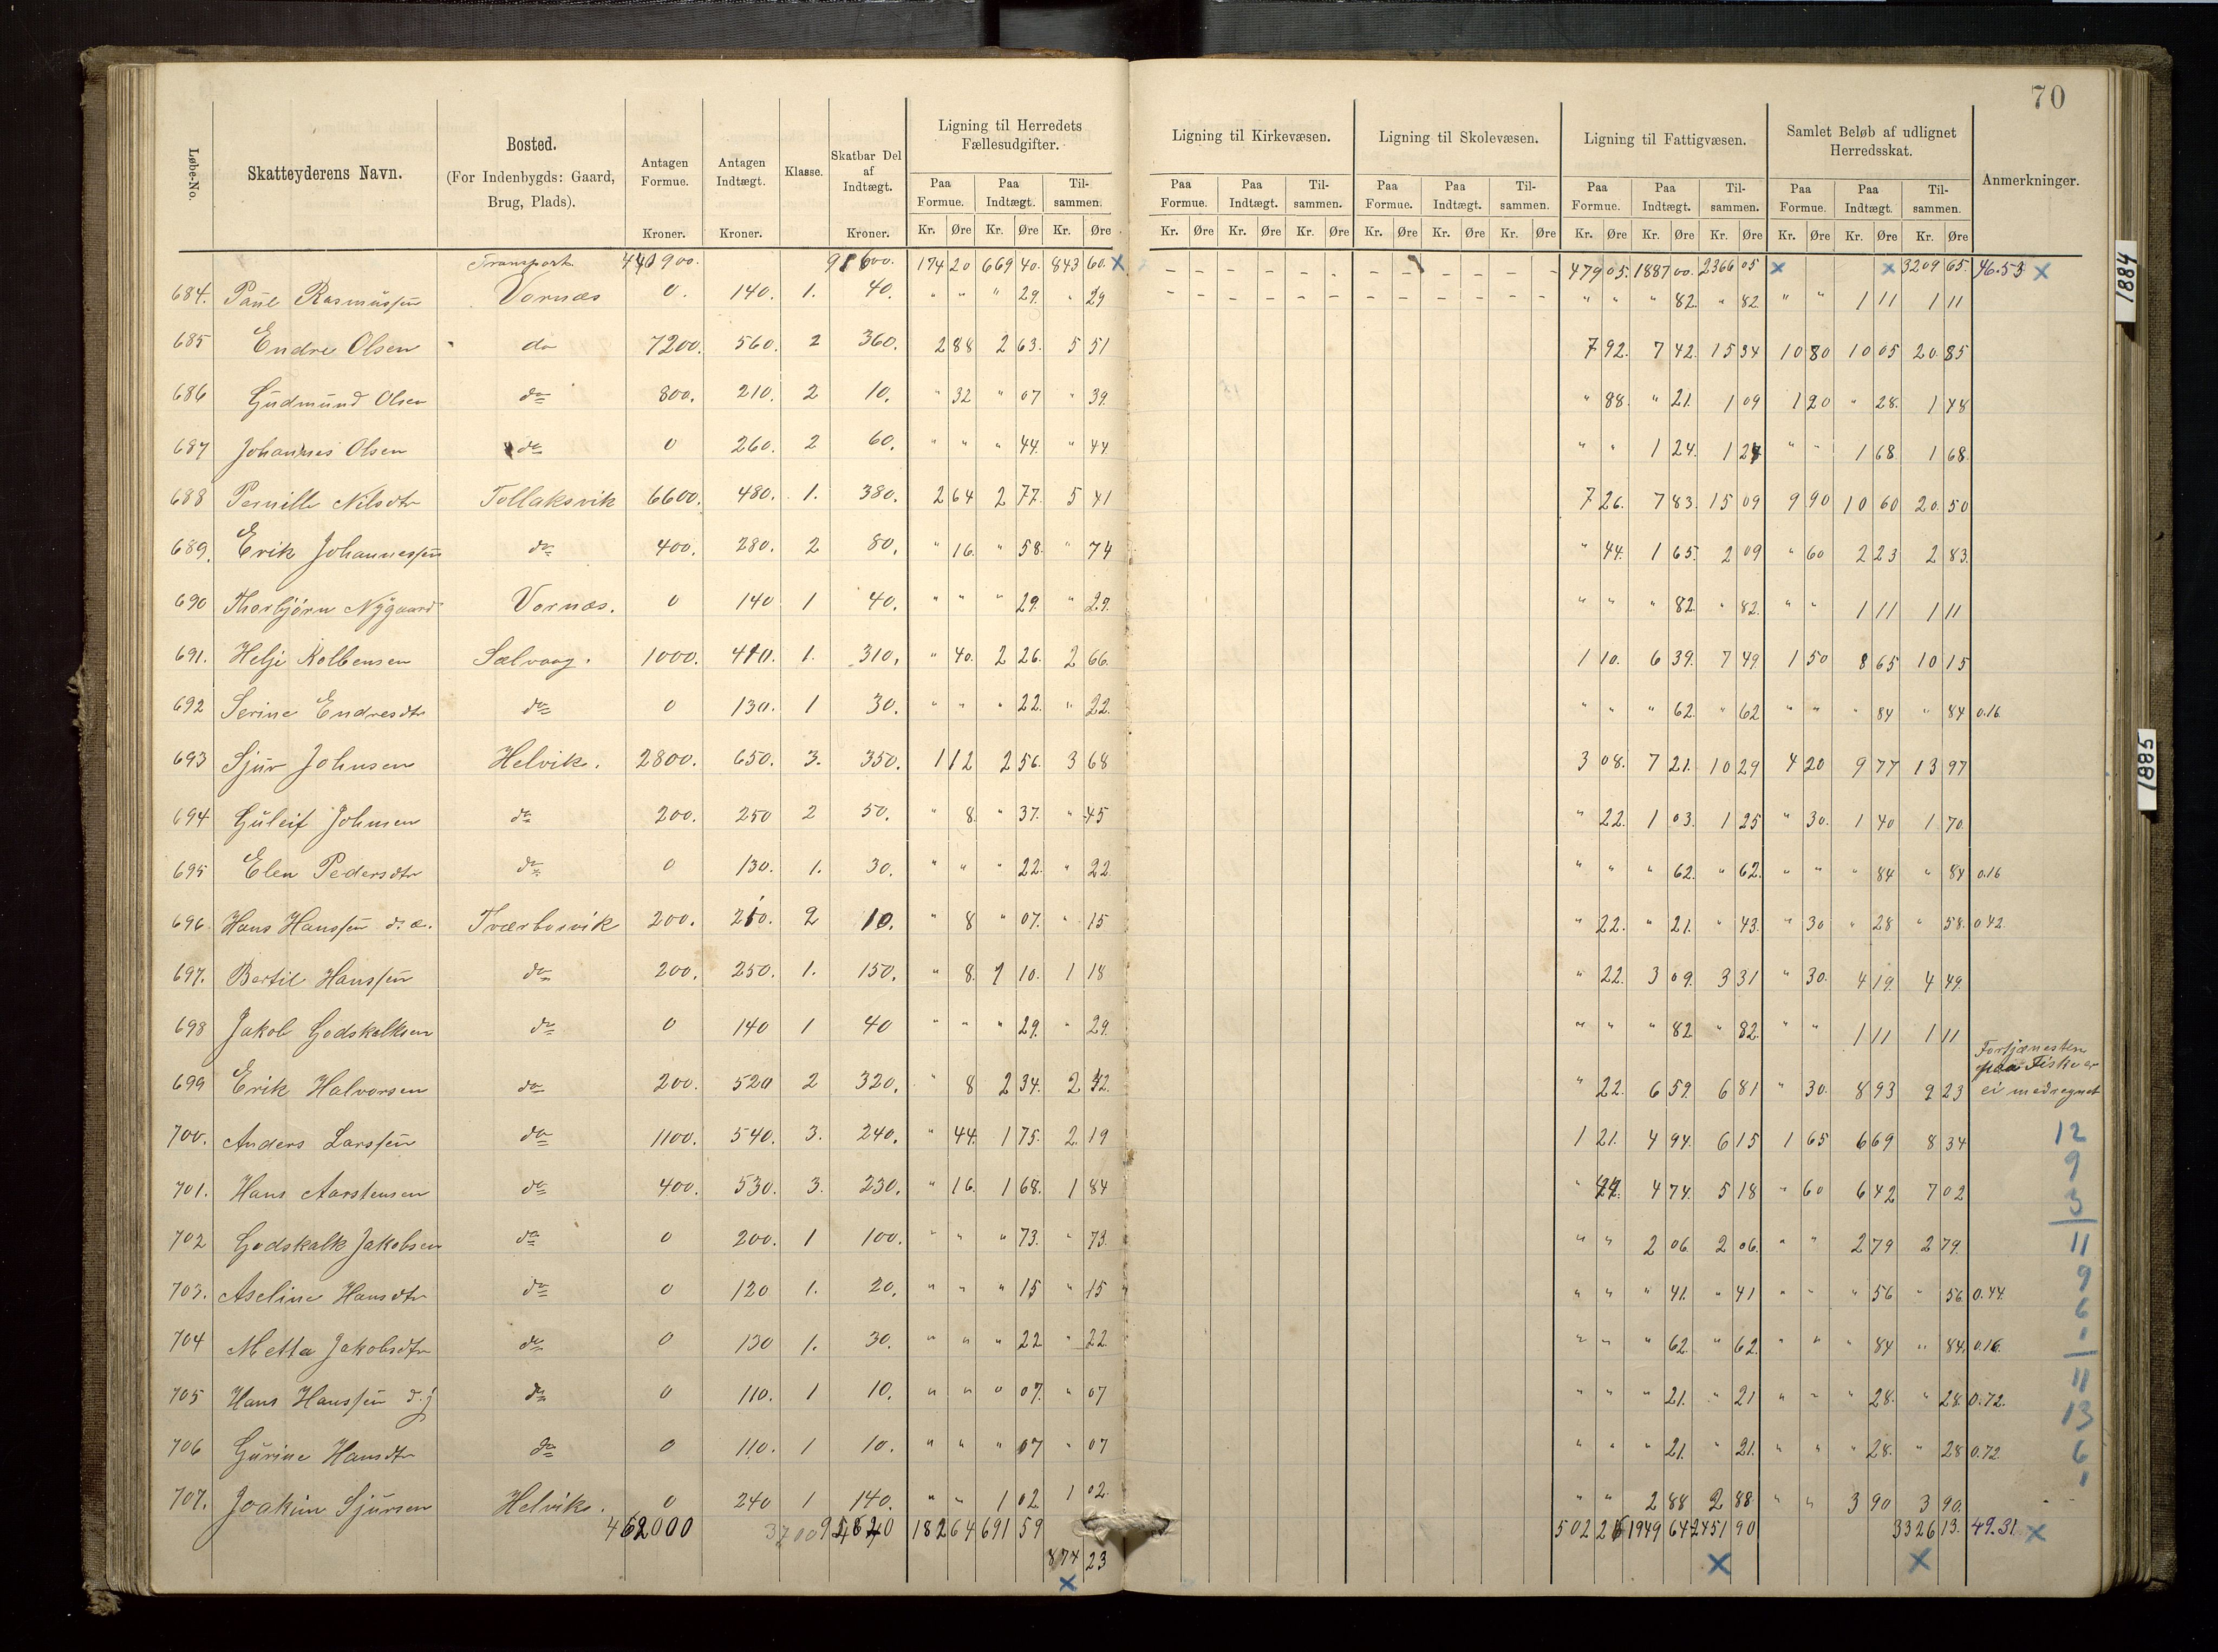 70
Løbe-No.
Skatteyderens Navn.
Bosted.
(For Indenbygds: Gaard, Brug, Plads).
Antagen Formue.
Kroner.
Antagen Indtægt.
Kroner.
Klasse.
Skatbar Del af Indtægt.
Kroner.
Ligning til Herredets Fællesudgifter.
Ligning til Kirkevæsen.
Ligning til Skolevæsen.
Ligning til Fattigvæsen.
Samlet Beløb af udlignet Herredsskat.
Anmerkninger.
Paa Formue. Paa Indtægt. Til- sammen. Paa Formue. Paa Indtægt. Til- sammen. Paa Formue. Paa Indtægt. Til- sammen. Paa Formue. Paa Indtægt. Til- sammen. Paa Formue. Paa Indtægt. Til- sammen.
Kr. Øre Kr. Øre Kr. Øre Kr. Øre Kr. Øre Kr. Øre Kr. Øre Kr. Øre Kr. Øre Kr. Øre Kr. Øre Kr. Øre Kr. Øre Kr. Øre Kr. Øre
Transport 174 20 669 40. 843 60. x 479 05. 1887 00. 2366 05 x x 3209 65. 46.53 x
684. Paul Rasmussen Vornæs 0. 140. 1. 40. " " " 29. " 29 " " " 82. " 82. " " 1 11 1 11
685 Endre Olsen do 7200. 560. 2 360. 2 88 2 63. 5 51 7 92. 7 42. 15 34 10 80 10 05 20 85
686 Gudmund Olsen do 800. 210. 2 10. " 32 " 07 " 39. " 88. " 21. 1 09 1 20 " 28. 1 48
687 Johannes Olsen do 0 260. 2 60. " " " 44. " 44. " " 1 24. 1 24 " " 1 68. 1 68.
688 Pernille Nilsdtr Tollaksvik 6600. 480. 1. 380. 2 64 2 77. 5 41 7 26. 7 83. 15 09 9 90 10 60 20. 50
689. Erik Johannessen do 400. 280. 2 80. " 16. " 58. " 74 " 44. 1 65. 2 09 " 60 2 23 2 83.
690 Thorbjørn Nygaard Vornæs. 0 140 1 40. " " " 29. " 29. " " " 82. " 82. " " 1 11 1 11
691. Helje Kolbensen Sælvaag. 1000. 410. 1. 310. " 40. 2 26. 2 66. 1 10. 6 39. 7 49. 1 50 8 65 10 15
692 Serine Endresdtr do 0 130. 1 30. " " " 22. " 22. " " " 62. " 62 " " " 84 " 84 0.16
693 Sjur Johnsen Helvik. 2800. 650. 3. 350. 1 12 2 56. 3 68 3 08. 7 21. 10 29 4 20 9 77 13 97
694 Guleif Johnsen do 200. 250 2 50. " 8. " 37. " 45 " 22. 1 03. 1 25 " 30. 1 40 1 70.
695 Elen Pedersdtr do 0 130. 1. 30. " " " 22. " 22 " " " 62. " 62. " " " 84 " 84 0.16
696 Hans Hanssen d. æ. Tværborvik 200. 210. 2 10. " 8 " 07. " 15 " 22. " 21. " 43. " 30 " 28 " 58. 0.42.
697. Bertil Hanssen do 200. 250. 1. 150. " 8. 1 10. 1 18 " 22. 3 09. 3 31 " 30. 4 19. 4 49.
698 Jakob Godskalksen do 0 140 1 40 " " " 29. " 29. " " " 82 " 82. " " 1 11 1 11
Fortjænesten
paa Fiske er
ei medregnet
699 Erik Halvorsen do 200. 520 2 320. " 8 2 34. 2 42. " 22. 6 59. 6 81 " 30. 8 93 9 23
700. Anders Larssen do 1100. 540. 3. 240. " 44. 1 75. 2. 19 1 21. 4 94. 6 15 1 65 6 69 8 34
701. Hans Aarstensen do 400. 530. 3. 230. " 16. 1 68. 1 84 " 44. 4 74. 5 18 " 60 6 42 7 02
702 Godskalk Jakobsen do 0 200. 1 100. " " " 73. " 73. " " 2 06. 2 06. " " 2 79 2 79.
703. Aseline Hansdtr do 0 120 1. 20. " " " 15 " 15 " " " 41. " 41 " " " 56 " 56 0.44.
704 Metta Jakobsdtr do 0 130 1. 30. " " " 22 " 22 " " " 62. " 62. " " " 84 " 84. 0.16.
705 Hans Hanssen d. j do 0 110. 1 10. " " " 07. " 07 " " " 21. " 21 " " " 28. " 28. 0.72.
706 Gurine Hansdtr do 0 110. 1 10. " " " 07 " 07 " " " 21. " 21. " " " 28. " 28 0.72
707. Joakim Sjursen Helvik. 0 240 1 140. " " 1 02. 1 02. " " 2 88 2 88. " " 3 90 3 90.
462000 182 64 691 59 1949 64 2451 90 3326 13. 49.31 x
874 23
x x x
12
9
3
11
9
6
11
13
6
1884
1885